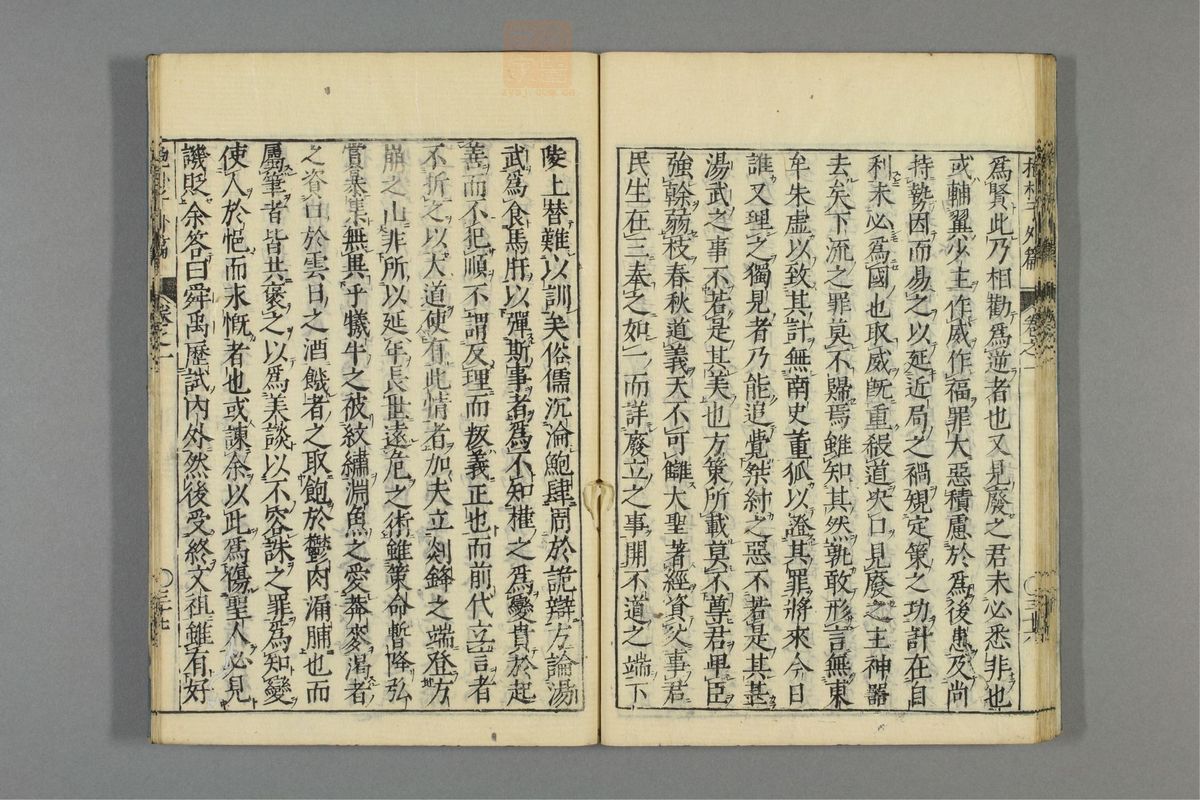 為賢此乃相勸為逆者也又見廢之君未必悉非也
或輔翼少主作威作福罪大惡積慮於為後患及尚
持勢因而易之以延近局之禍規定策之功計在自
利未必為國也取威既重殺道决口見廢之主神器
去矣下流之罪莫不歸焉雖知其然孰敢形言無東
牟朱虛以致其計無南史董狐以證其罪將來今日
誰又理之獨見者乃能追覺桀紂之惡不若是其甚
湯武之事不若是其美也方策所載莫不尊君卑臣
強幹弱枝春秋道義天不可讎大聖著經資父事君
民生在三奉之如一而詳廢立之事開不道之端下
陵上替難以訓矣俗儒沉淪鮑肆困於詭辯方論湯
武為食馬肝以彈斯事者為不知權之為變貴於起
善而不犯順不謂反理而叛義正也而前代立言者
不折之以大道使有此情者加夫立剡鋒之端登方
崩之山非所以延年長世遠危之術雖策命暫隆弘
賞暴集無異乎犧牛之被紋繡淵魚之愛莽麥渴者
之資口於雲日之酒饑者之取飽於鬱肉漏脯也而
屬筆者皆共褒之以為美談以不容誅之罪為知變
使人於悒而永慨者也或諫余以此為傷聖人必見
譏貶余答曰舜禹歷試內外然後受終文祖雖有好